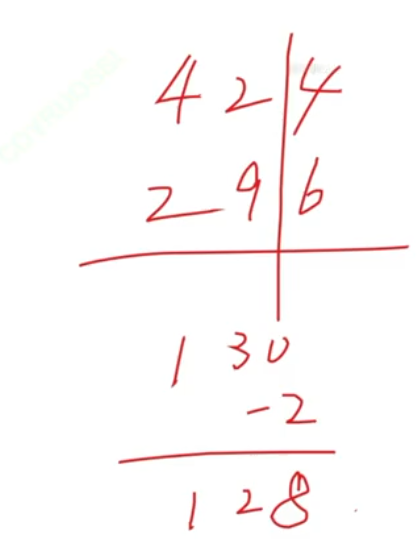 42|4
29|6
130
-2
128